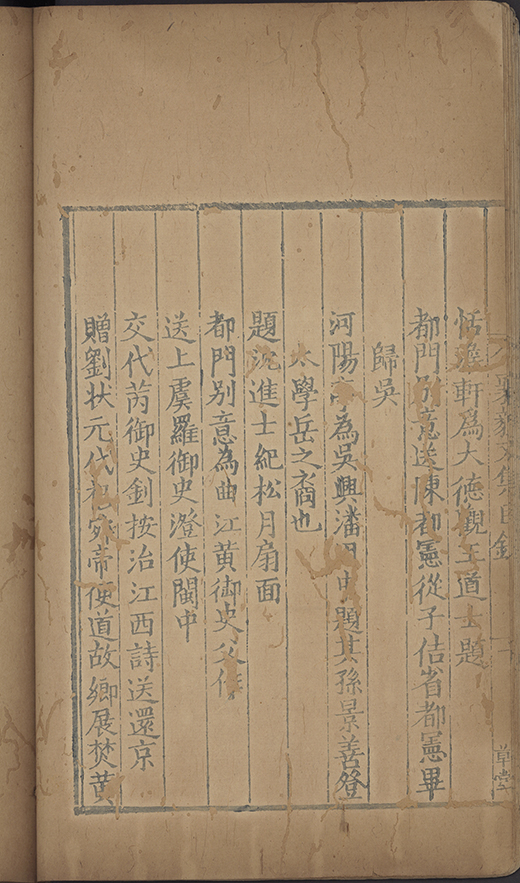 襄毅文集目錄
草堂
恬澹軒為大德觀王道士題
都門別意送陳都憲從子佶省都憲畢
歸吳
河陽為吳興潘中題其孫景善登
太學岳之裔也
題沈進士紀松月扇面
都門別意為曲江黃御史父作
送上虞羅御史澄使閩中
交代芮御史釗按治江西詩送還京
贈劉狀元代祀帝便道故鄉展焚黃